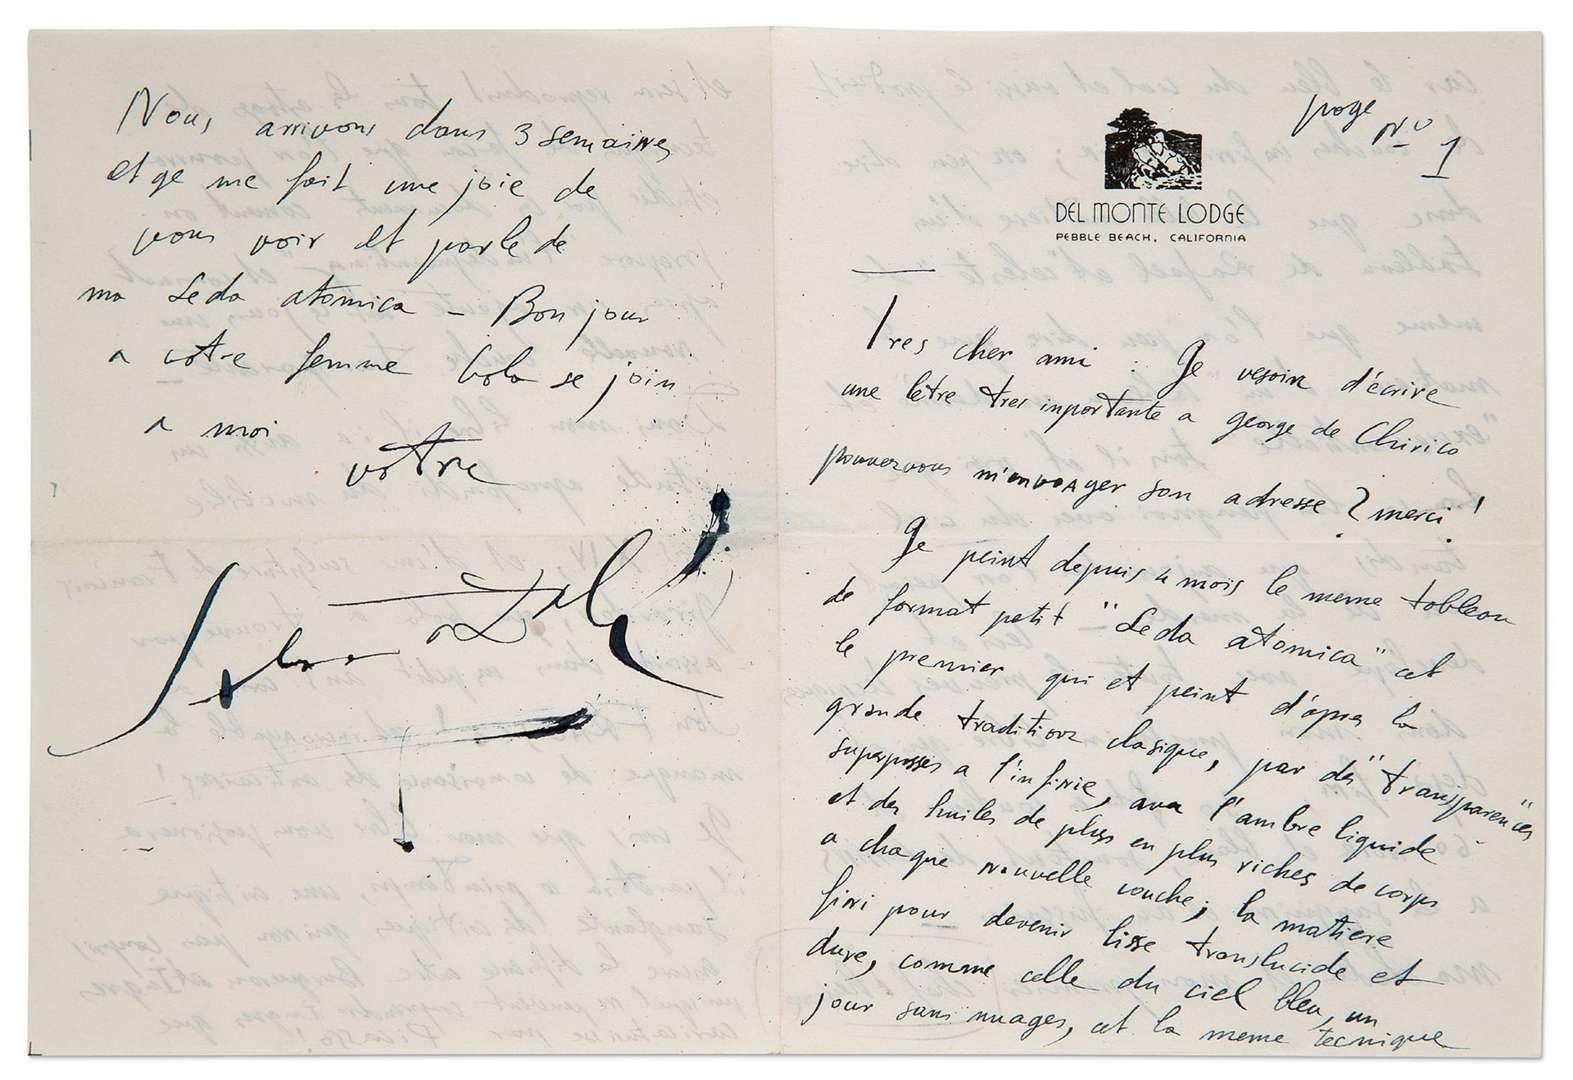 page No 1
DEL MONTE LODGE
PEBBLE BEACH, CALIFORNIA
Tres cher ami : Ge vesoin d'écrire
une lètre tres inportante a george de Chirico
pouvezvous m'envoayer son adresse ? merci !
Ge peint depuis 4 mois le meme tableau
de format petit "Leda atomica" cet
le premier qui et peint d'apres la
grande tradition clasique, par des "transparences"
superposses a l'infinie, avec l'ambre liquide
et des huiles de plus en plus riches de corps
a chaque nouvelle couche; la matiere
fini pour devenir lisse translucide et
dure, comme celle du ciel bleu, un
jour sans nuages, cet la meme tecnique
Nous arrivons dans 3 semaines
et ge me fait une joie de
vous voir et parle de
ma Leda atomica — Bonjour
a votre femme Gala se join
a moi
votre
Salvador Dalí